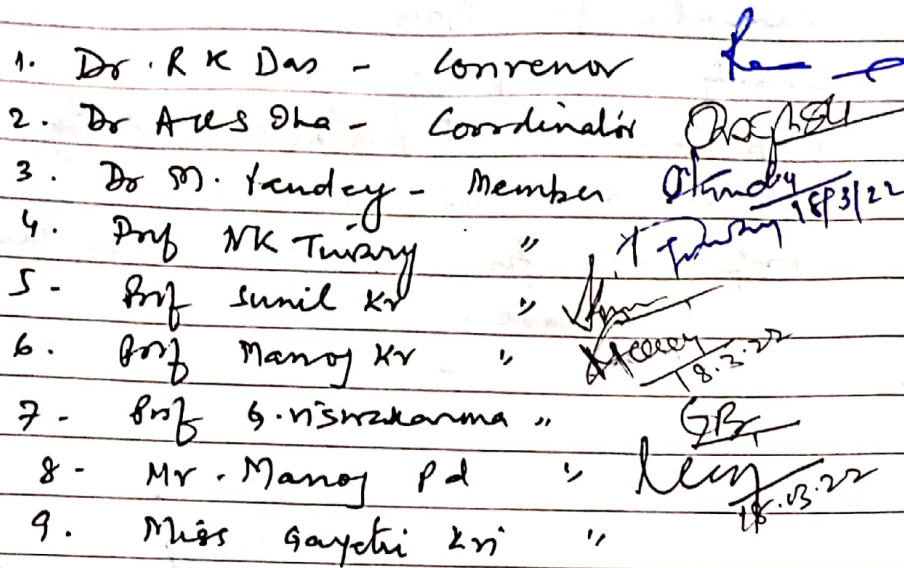 1. Dr. R K Das - Convenor
2. Dr AKS Jha - Coordinator
3. Dr M. Pandey - Member 18/3/22
4. Prof NK Tiwary "
5 - Prof Sunil Kr "
6. Prof Manoj Kr " 18.3.22
7 - Prof G. Viswakarma "
8 - Mr. Manoj Pd " 18.03.22
9. Miss Gayatri Kri "